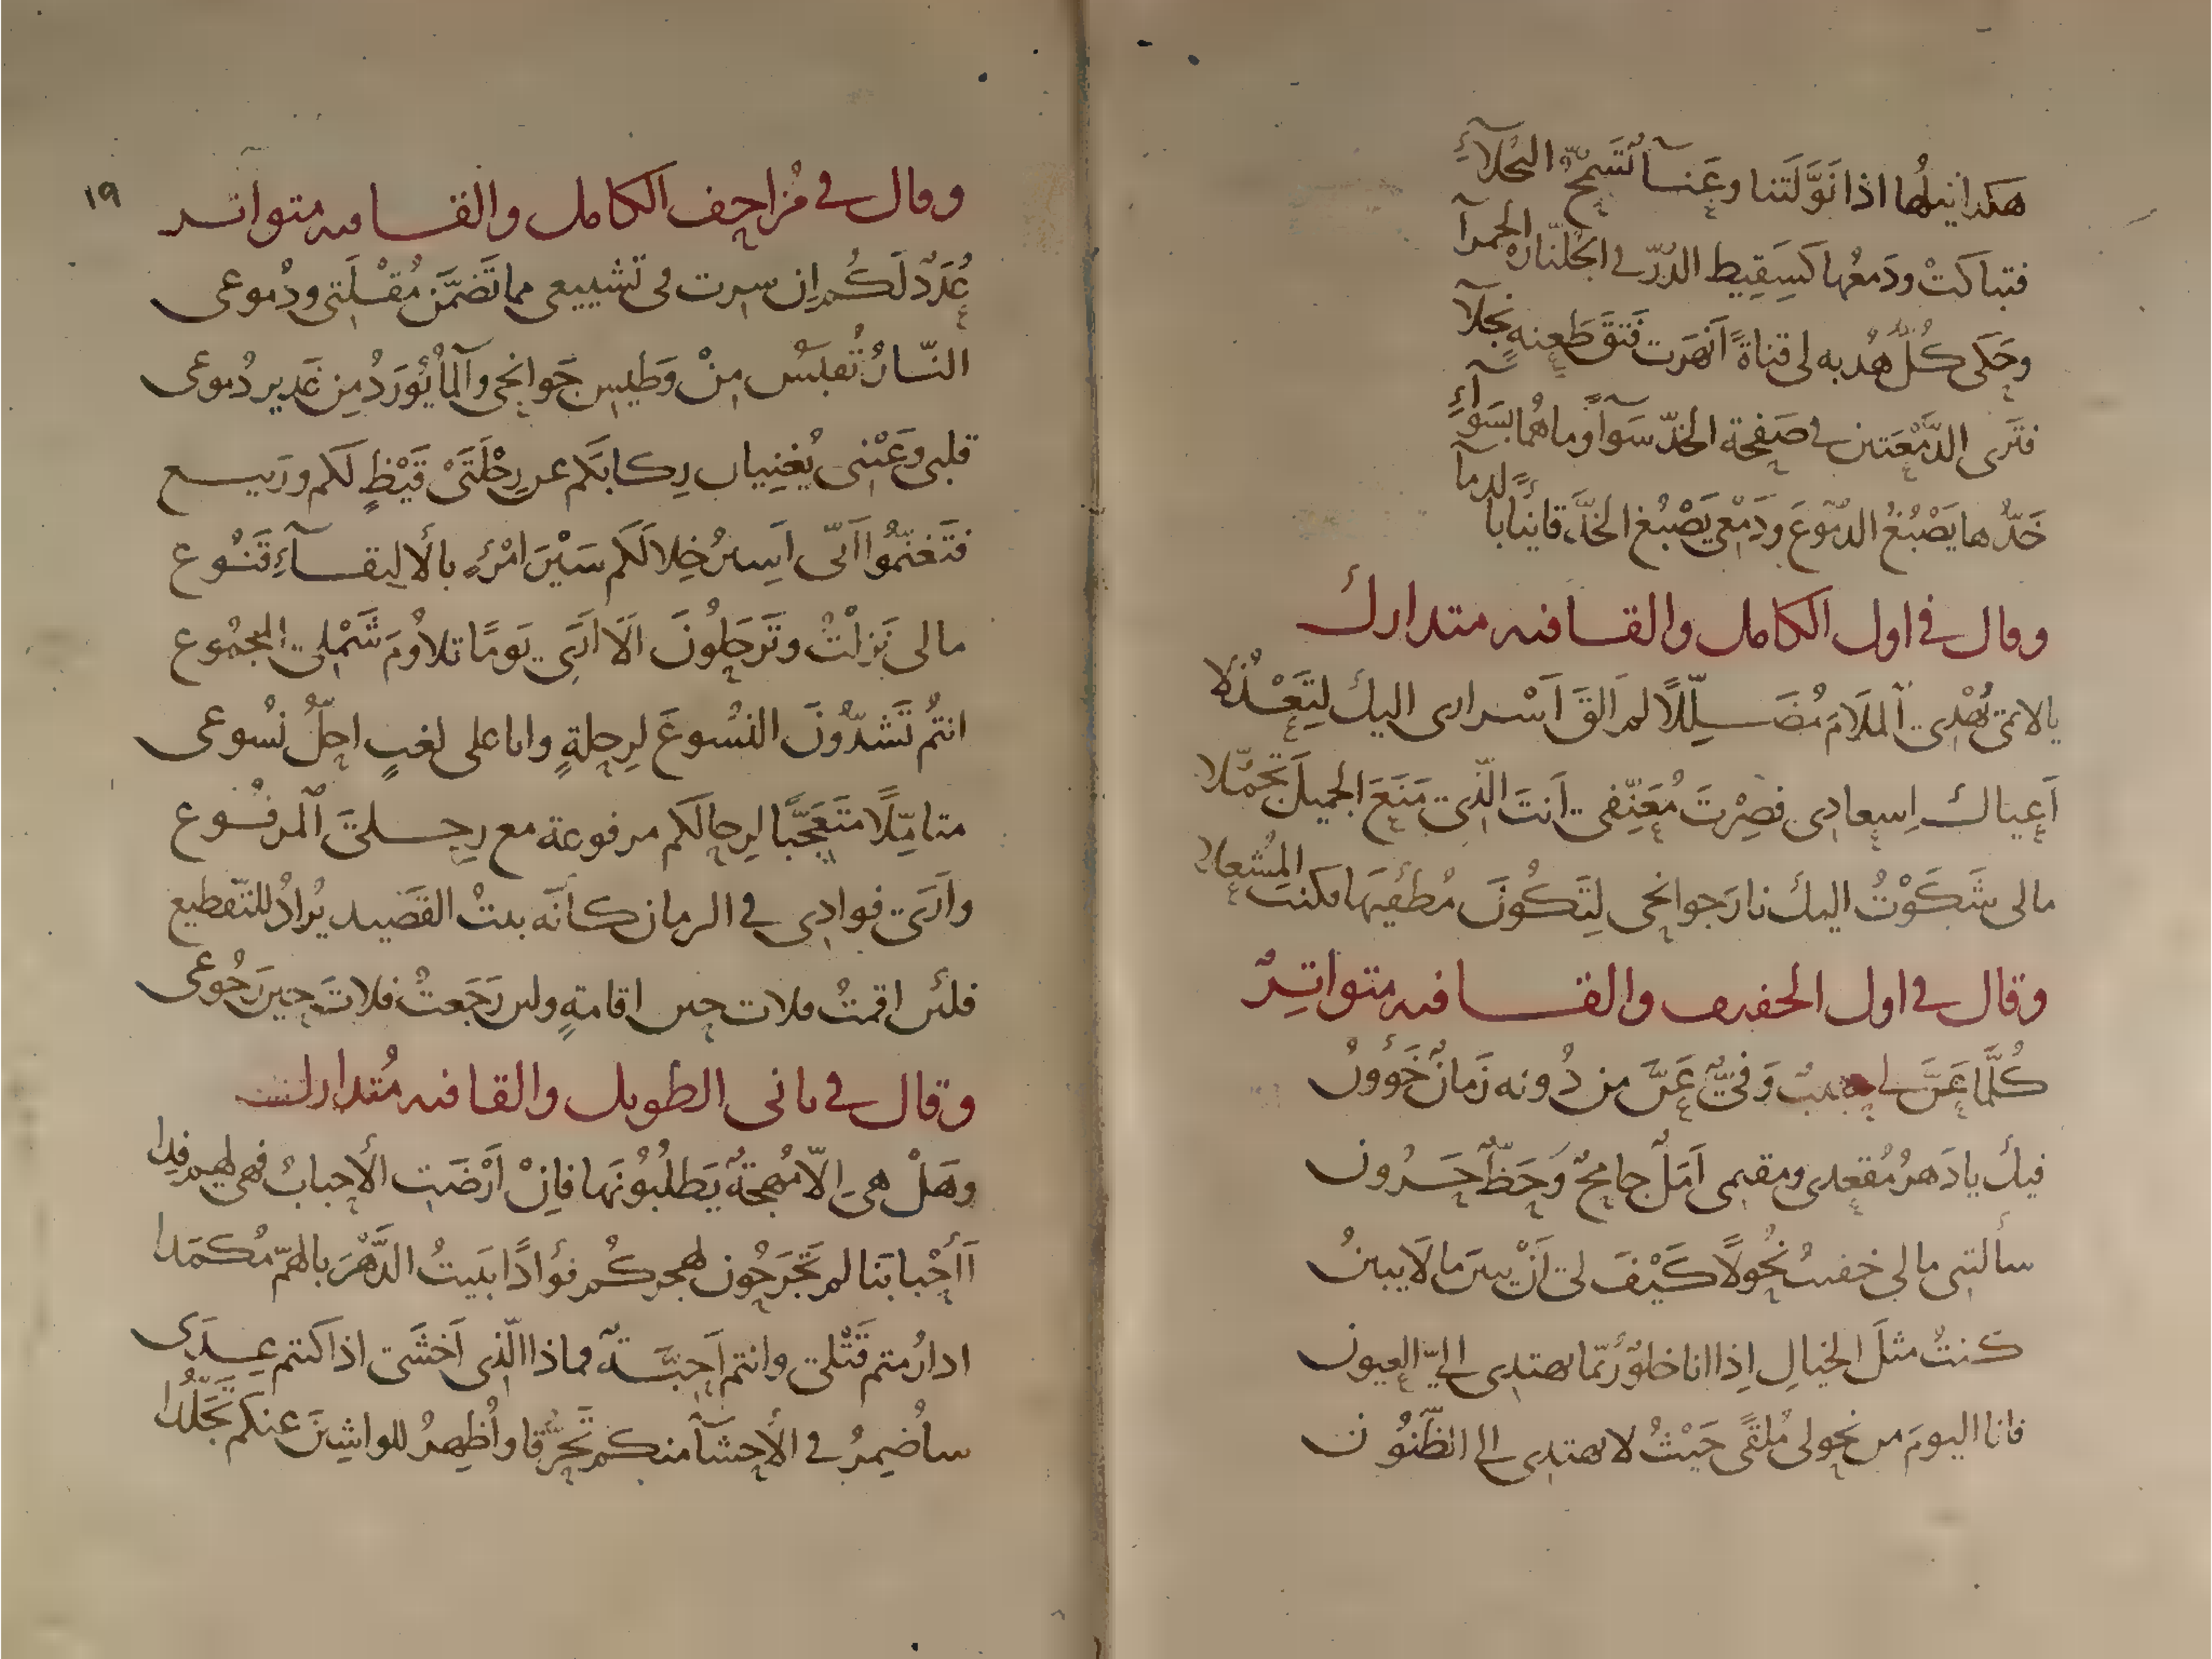 هكذا نيلها اذا نَوَّلَتنا وعَنآ تَسَمّحُ البخلآءِ
فتباكَتْ ودَمعُها كَسِقِيطِ الدُرّ في الجُلّناره الحمرآ
وحَكى كُلُّ هُدبه لى قناةً اَنهَرَت فَتقَ طَعنه نجلآ
فتَرى الدَّمْعَتين في صَفحة الخدّ سَوآءً وما هُما بسَوآءِ
خَدُّها يَصْبُغُ الدموعَ ودَمْعى يَصْبُغ الخدَّ قانيًا بالدمآ
وقال في اول الكامل والقافيه متدارك
يا لائمى يُهْدِى اَلملَامَ مُضَلِّلًا لم اَلقَ اَسْرارى اليك لِتَعْذُلا
اَعياك اِسعادِى فصِرْتَ مُعَنِّفى اَنتَ الّذى مَنَعَ الجميلَ تَجَمُّلا
مالى شَكَوْتُ اليك نارَ جوانحى لِتَكُونَ مُطفيَها فكنتَ المُشعلا
وقال في اول الخفيف والقافيه متواتِرٌ
كُلَّما عَنَّ لى حبيبٌ وَفىٌّ عَنَّ من دُونه زَمانٌ خَؤُونُ
فيك يا دَهرُ مُقعدى ومقيمى اَمَلٌ جامحٌ وَحَظٌّ حَرُون
سألتنى مالى خفيتُ نُحُولًا كَيْفَ لى اَنْ يبينَ ما لَا يبينُ
كنتُ مثلَ الخيالِ اِذا انا خلوٌ رُبّما يهتدِى اِليّ العيون
فانا اليومَ من نحولى مُلقًى حَيْثُ لا يهتدِى الى الظّنُون
١٩
وقال في مُزاحف الكامل والقافيه متواتر
عُدَدٌ لَكُم اِن سِرت فى تَشييعى مما تَضمَّن مُقْلَتِى ودُموعى
النّارُ تُقبَسُ مِنْ وَطيس جَوانحى وآلمآُ يُورَدُ مِن غَدير دُموعى
قلبى وعَيْنى يُغنِيان رِكابَكم عن رِحْلَتَىْ قَيْظٍ لَكم ورَبيع
فتَغنّمُوا اَنّى اَسِيرُ خِلالَكم سَيْرَ امْرِئٍ بالألِقآءِ قَنُوع
مالى نَزلْتُ وتَرحَلُونَ اَلَا اَرَى يَومًا تلاوُمَ شَمْلِىَ المجمُوع
انتُم تَشدُّونَ النسُوعَ لِرحلةٍ وانا على لغبٍ احِلُّ نسُوعى
متامِّلًا متَعَجِّبًا لِرحالكم مرفوعة مع رِحلتىَ اَلمرفُوع
واَرَى فوادِى في الزمان كاَنّه بيتُ القَصيد يُرادُ للتّقطيع
فلئن اقمتُ فلات حين اقامةٍ ولئن رَجَعتُ فلاتَ حِينَ رُجُوعى
وقال في ثانى الطويل والقافيه مُتدارك
وهَلْ هىِ اِلّا مُهجةٌ يَطلُبُونَها فاِنْ اَرْضَتِ الأحبابُ فهى لهم فِدا
اَأحْبابَنا لم تَجْرَحُون لهجركُم فؤادًا يَبيتُ الدَّهْرَ بالهمّ مُكمَدا
ادارُمتم قَتْلى وانتم اَحِبّةٌ فماذا الّذى اَخشَى اذا كنتم عِدَى
ساُضمِرُ في الأحشآ منكم تَحَرُّقا واُظهرُ للواشِينَ عنكم تَجَلُّدا